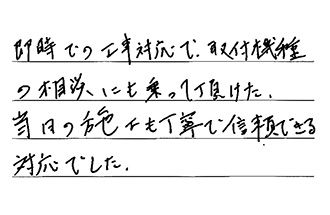 即時での工事対応で、取付機種
の相談にも乗って頂けた。
当日の施工も丁寧で信頼できる
対応でした。